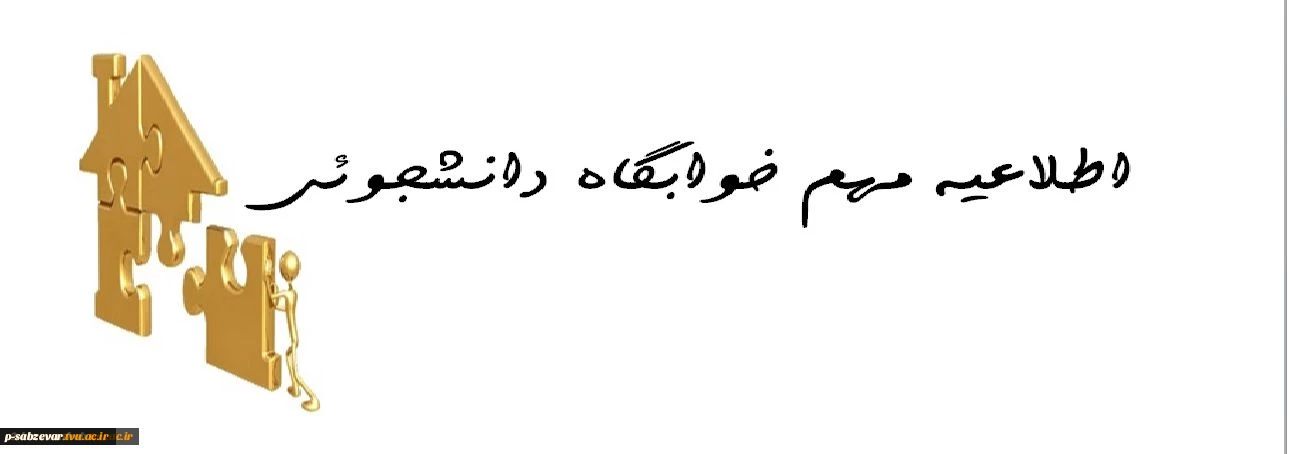 اطلاعیه مهم خوابگاه دانشجوئی
p-sabzevar.tvu.ac.ir